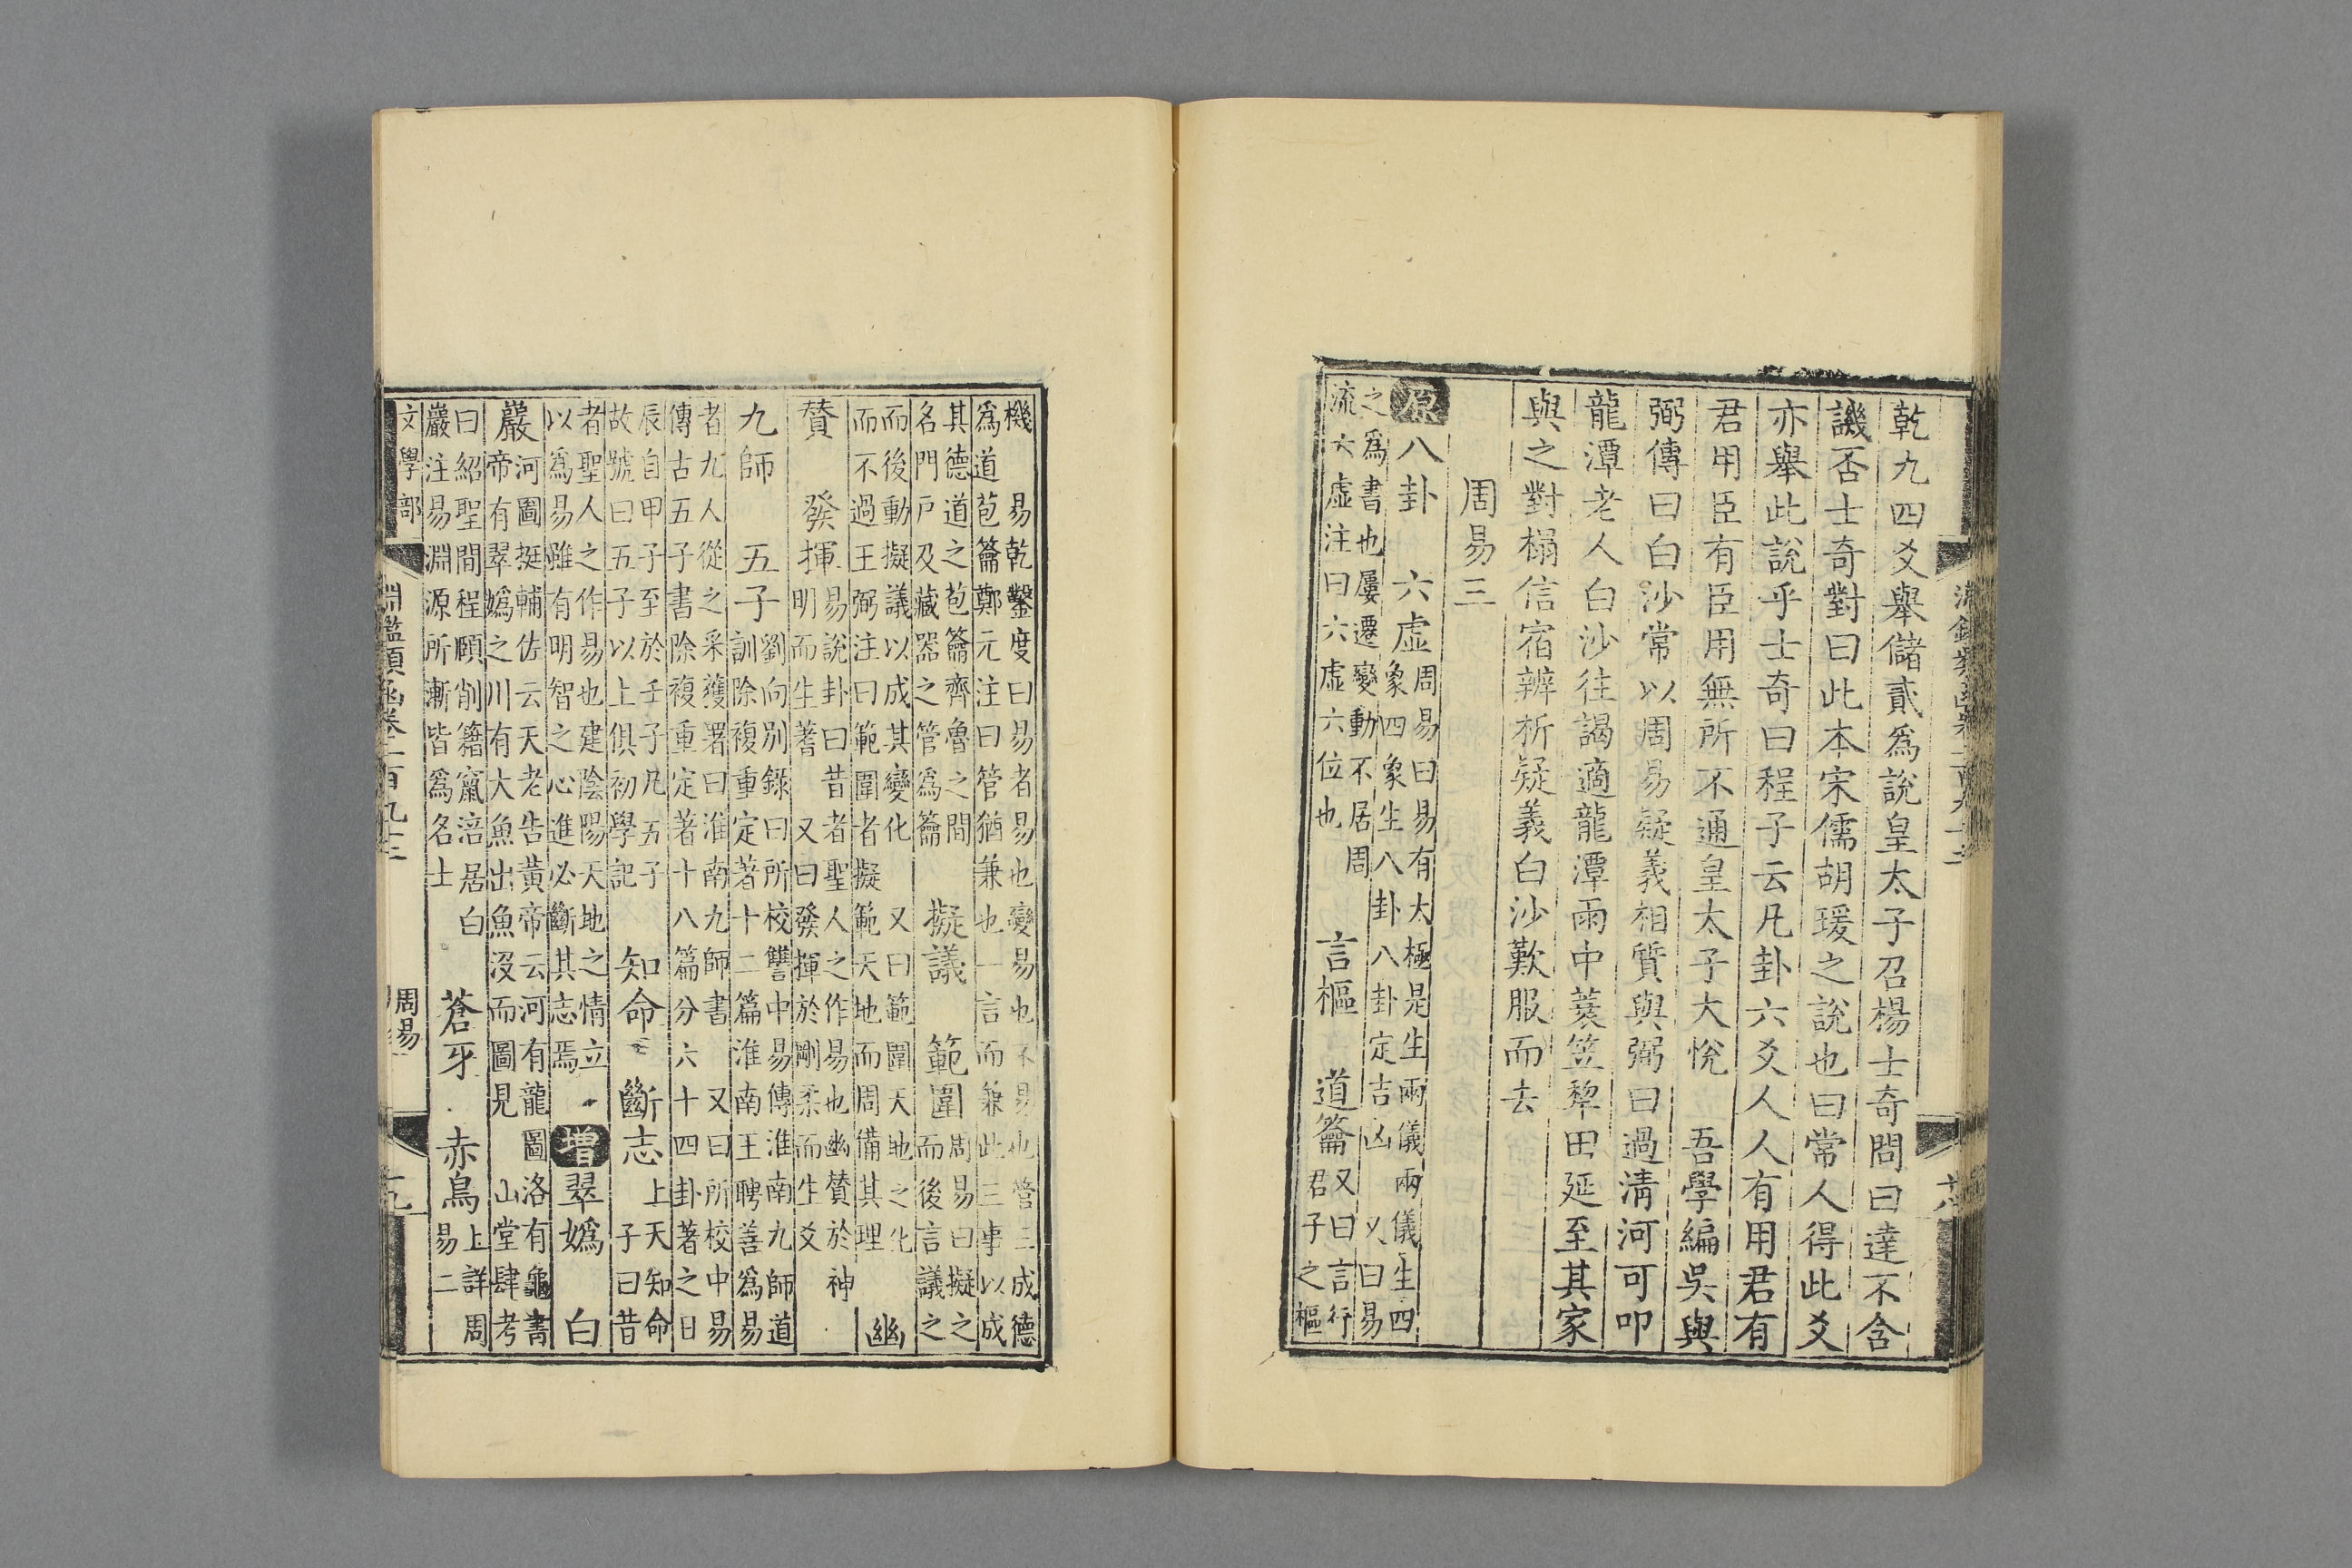 乾九四爻舉儲貳爲說皇太子召楊士奇問曰達不含
譏否士奇對曰此本宋儒胡瑗之說也曰常人得此爻
亦舉此說乎士奇曰程子云凡卦六爻人人有用君有
君用臣有臣用無所不通皇太子大悅 吾學編吳與
弼傳曰白沙常以周易疑義相質與弼曰過淸河可叩
龍潭老人白沙往謁適龍潭雨中蓑笠犂田延至其家
與之對榻信宿辨析疑義白沙歎服而去
周易三
原八卦 六虛周易曰易有太極是生兩儀兩儀生四
象四象生八卦八卦定吉凶 又曰易
之爲書也屢遷變動不居周
流六虛注曰六虛六位也 言樞 道籥又曰言行
君子之樞
機 易乾鑿度曰易者易也變易也不易也管三成德
爲道苞籥鄭元注曰管猶兼也一言而兼此三事以成
其德道之苞籥齊魯之間
名門戸及藏器之管爲籥 擬議 範圍周易曰擬之
而後言議之
而後動擬議以成其變化 又曰範圍天地之化
而不過王弼注曰範圍者擬範天地而周備其理 幽
贊 發揮易說卦曰昔者聖人之作易也幽贊於神
明而生蓍 又曰發揮於剛柔而生爻
九師 五子劉向別錄曰所校讐中易傳淮南九師道
訓除複重定著十二篇淮南王聘善爲易
者九人從之采獲署曰淮南九師書 又曰所校中易
傳古五子書除複重定著十八篇分六十四卦著之日
辰自甲子至於壬子凡五子
故號曰五子以上俱初學記 知命 斷志上天知命
子曰昔
者聖人之作易也建陰陽天地之情立
以爲易雖有明智之心進必斷其志焉 增翠嬀 白
巖河圖挺輔佐云天老告黃帝云河有龍圖洛有龜書
帝有翠嬀之川有大魚出魚沒而圖見 山堂肆考
曰紹聖間程頤削籍竄涪居白
巖注易淵源所漸皆爲名士 蒼牙 赤鳥上詳周
易二
文學部
淵鑑類函卷一百九十三
周易
十九